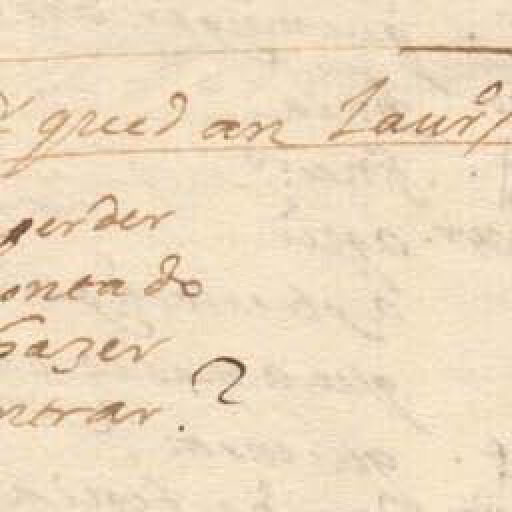 qued an Laur.º
perder
ontado
hazer
ntrar. 2